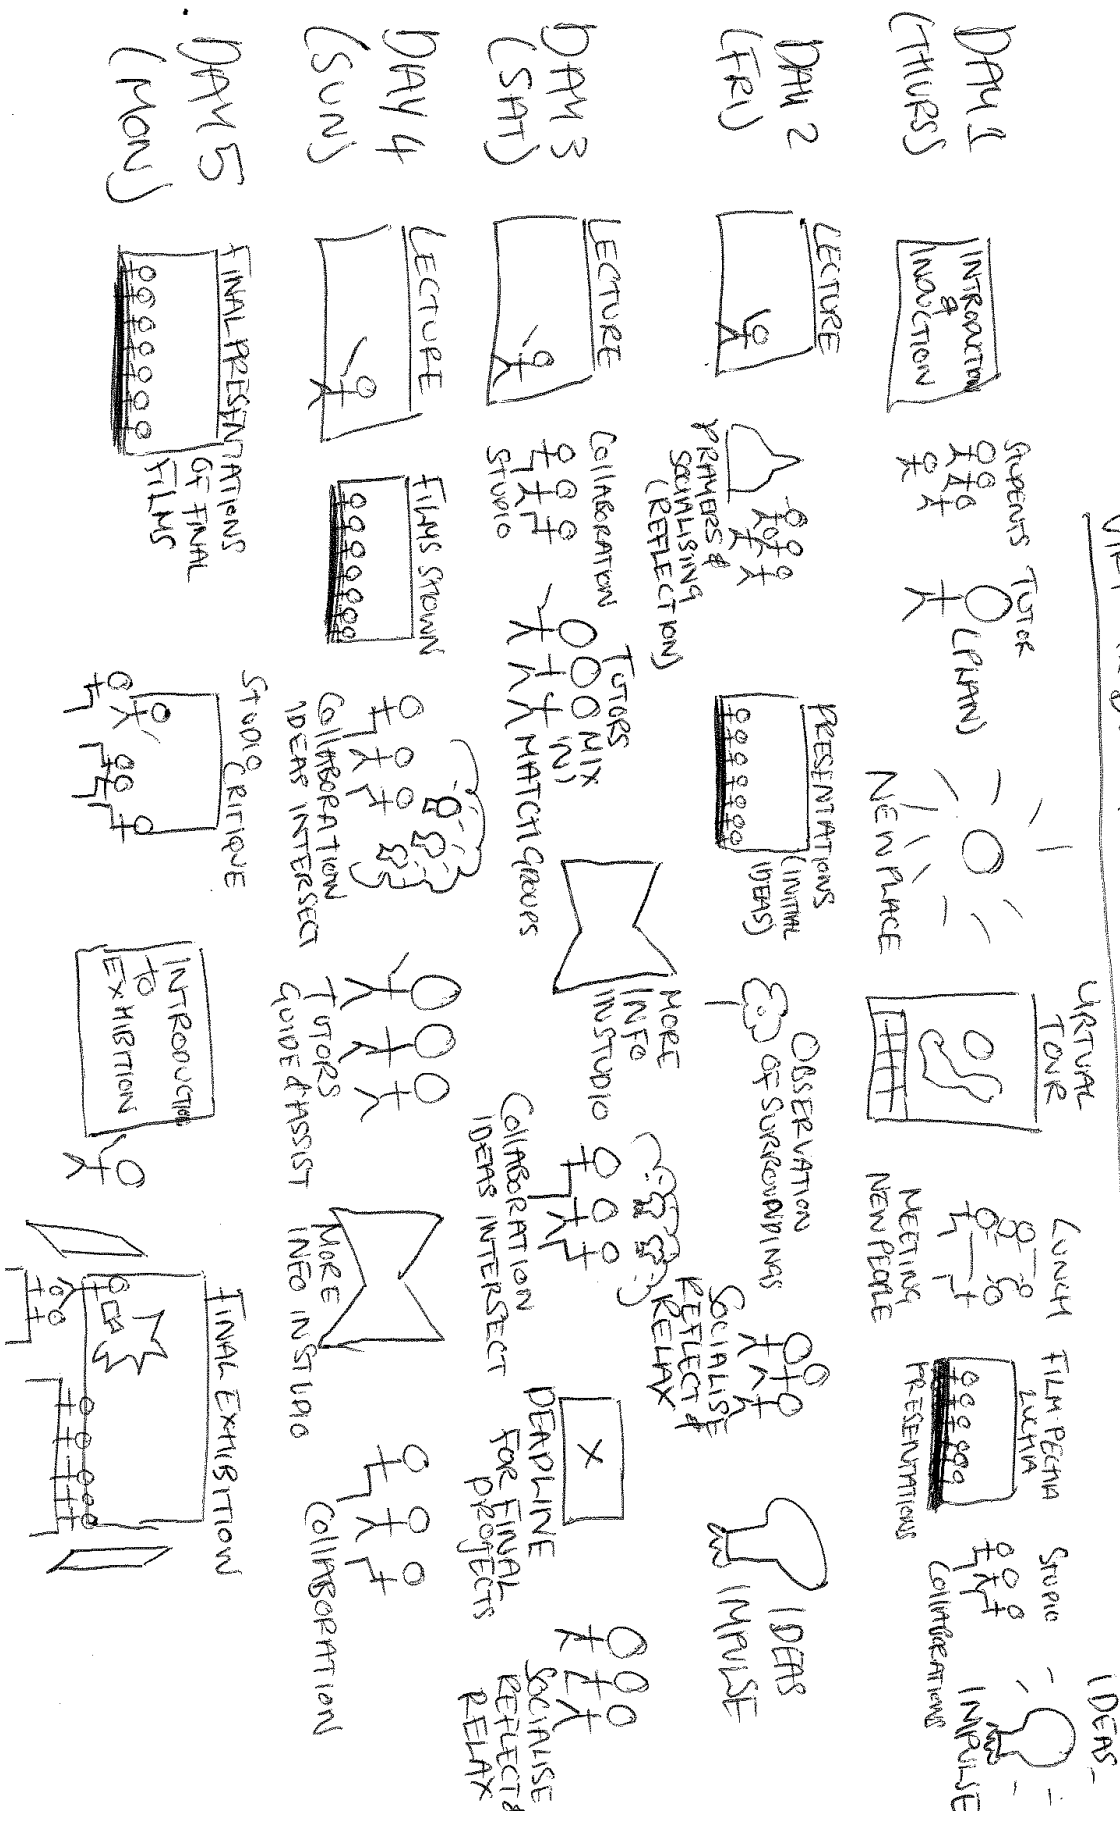 DAY 1
(THURS)
INTRODUCTION
&
INDUCTION
STUDENTS
TUTOR
NEW PLACE
VIRTUAL
TOUR
LUNCH
MEETING
NEW PEOPLE
FILM-PECHA
KUCHA
PRESENTATIONS
STUDIO
COLLABORATIONS
IDEAS
IMPULSE
DAY 2
(FRI)
LECTURE
PRAYERS &
SOCIALISING
(REFLECTION)
PRESENTATIONS
(INITIAL
IDEAS)
OBSERVATION
OF SURROUNDINGS
SOCIALISE
REFLECT &
RELAX
IDEAS
IMPULSE
DAY 3
(SAT)
LECTURE
COLLABORATION
STUDIO
TUTORS
MIX
IN)
MATCH GROUPS
MORE
INFO
IN STUDIO
COLLABORATION
IDEAS INTERSECT
X
DEADLINE
FOR FINAL
PROJECTS
SOCIALISE
REFLECT &
RELAX
DAY 4
(SUN)
LECTURE
FILMS SHOWN
COLLABORATION
IDEAS INTERSECT
TUTORS
GUIDE & ASSIST
MORE
INFO IN STUDIO
COLLABORATION
DAY 5
(MON)
FINAL PRESENTATIONS
OF FINAL
FILMS
STUDIO
CRITIQUE
INTRODUCTION
TO
EXHIBITION
FINAL EXHIBITION